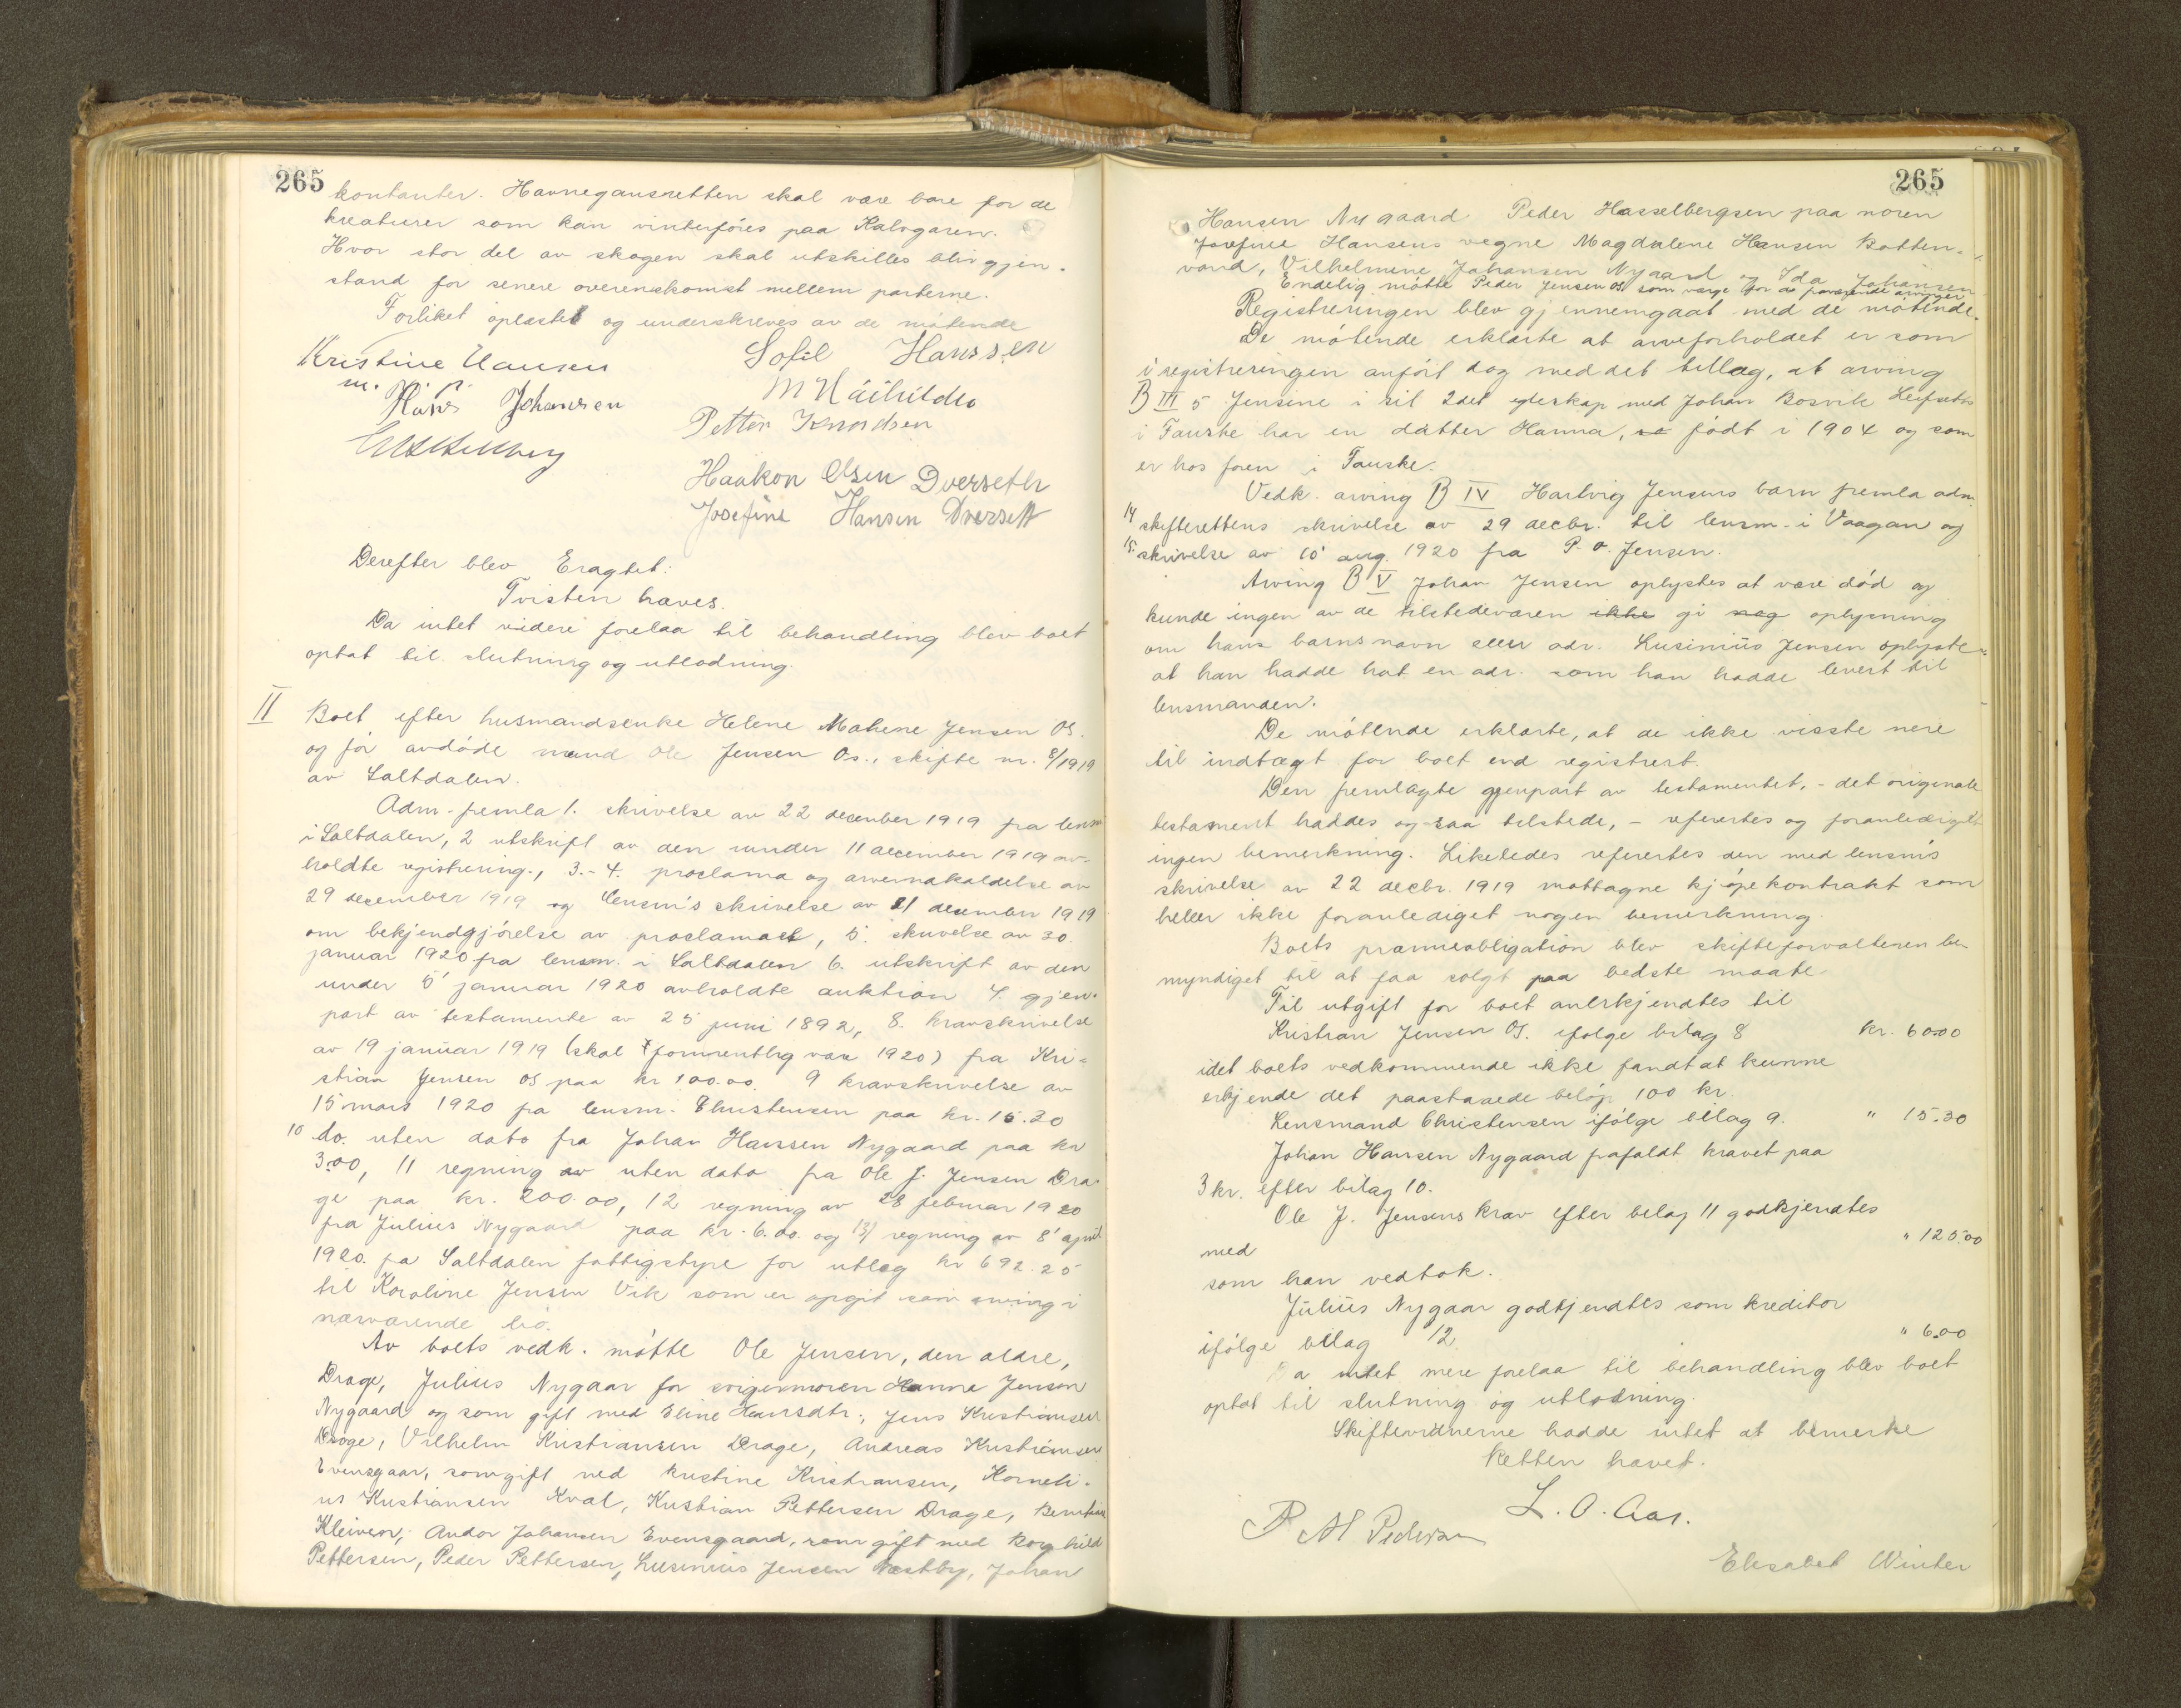 265
kontanter. Havnegangsretten skal være bare for de
kreaturer som kan vinterföres paa Kalvgaren.
Hvor stor del av skogen skal utskilles blir gjen-
stand for senere overenskomst mellem parterne.
Forliket oplæstes og underskreves av de mötende
Kristine Hansen
m. p.
Hans Johansen
Sofie Hanssen
Petter Knordsen
Haakon Olsen Dverseth
Josefine Hansen Dverseth
Derefter blev Eragtet:
Tvisten hæves.
Da intet videre forelaa til behandling blev boet
optat til slutning og utlodning.
II Boet efter husmandsenke Helene Malene Jensen Os.
og för avdöde mand Ole Jensen Os., skifte nr. 8/1919
av Saltdalen.
Adm. fremla 1. skrivelse av 22 december 1919 fra lensm
i Saltdalen, 2 utskrift av den under 11 december 1919 av-
holdte registrering., 3.-4. proclama og arveindkaldelse av
29 december 1919 og lensm's skrivelse av 31 december 1919
om bekjendgjörelse av proclamaet, 5. skrivelse av 30.
januar 1920 fra lensm. i Saltdalen 6. utskrift av den
under 5' januar 1920 avholdte auktion 7. gjen-
part av testamente av 25 juni 1892, 8. kravskrivelse
av 19 januar 1919 (skal formentlig være 1920) fra Kri-
stian Jensen Os paa kr 100.00. 9 kravskrivelse av
15 mars 1920 fra lensm. Christensen paa kr. 15.30
10 do. uten dato fra Johan Hansen Nygaard paa kr
3.00, 11 regning av uten dato fra Ole J. Jensen Dra-
ge paa kr. 200.00, 12 regning av 28 februar 1920
fra Julius Nygaard paa kr. 6.00. og 13) regning av 8' april
1920. fra Saltdalen fattigstyre for utlæg kr 692.25
til Karoline Jensen Vik som er opgit som arving i
nærværende bo.
Av boets vedk. mötte Ole Jensen, den ældre,
Drage, Julius Nygaar for svigermoren Hanna Jensen
Nygaard og som gift med Eline Hansdtr., Jens Kristiansen
Drage, Vilhelm Kristiansen Drage, Andreas Kristiansen
Evensgaar, som gift med Kristine Kristiansen, Korneli-
us Kristiansen Kval, Kristian Pettersen Drage,
Kleiven, Andor Johansen Evensgaard, som gift med Borghild
Pettersen, Peder Pettersen, Lusinius Jensen Næstby, Johan
265
Hansen Nygaard Peder Hasselbergsen paa moren
Josefine Hansens vegne Magdalene Hansen Botten-
vand, Vilhelmine Johansen Nygaard og Ida Johansen
Endelig mötte Peder Jensen Os. som værge for de fraværende arvinger
Registreringen blev gjennemgaat med de mötende.
De mötende erklærte at arveforholdet er som
i registreringen anfört dog med det tillæg, at arving
B III 5 Jensine i sit 2det egteskap med Johan Bosvik Leifseth
i Fauske har en datter Hanna, so födt i 1904 og som
er hos faren i Fauske.
Vedk. arving B IV Hartvig Jensens barn fremla adm.
14 skifterettens skrivelse av 29 decbr. til lensm. i Vaagan og
15. skrivelse av 10' aug. 1920 fra P. O. Jensen.
Arving B V Johan Jensen oplystes at være död og
kunde ingen av de tilstedeværen ikke gi nog oplysning
om hans barns navn eller adr. Lusinius Jensen oplyste
at han hadde hat en adr. som han hadde levert til
lensmanden.
De mötende erklærte, at de ikke visste mere
til indtægt for boet end registrert.
Den fremlagte gjenpart av testamentet, - det originale
testament haddes og saa tilstede, - refertes og foranlediget
ingen bemerkning. Likeledes refertes den med lensm's
skrivelse av 22 decbr. 1919 mottagne kjöpekontrakt som
heller ikke foranlediget nogen bemerkning.
Boets præmieobligation blev skifteforvalteren be-
myndiget til at faa solgt paa bedste maate.
Til utgift for boet anerkjendtes til
Kristian Jensen Os. ifölge bilag 8 kr. 60.00
idet boets vedkommende ikke fandt at kunne
erkjende det paastaaede belöp 100 kr.
Lensmand Christensen ifölge bilag 9. " 15.30
Johan Hansen Nygaard frafaldt kravet paa
3 kr. efter bilag 10.
Ole J. Jensens krav efter bilag 11 godkjendtes
med " 125.00
som han vedtok.
Julius Nygaar godkjendtes som kreditor
ifölge bilag 12 " 6.00
Da intet mere forelaa til behandling blev boet
optat til slutning og utlodning.
Skiftevidnerne hadde intet at bemerke
Retten hævet.
L. O. Aas.
P M Pedersen
Elisabet Winter